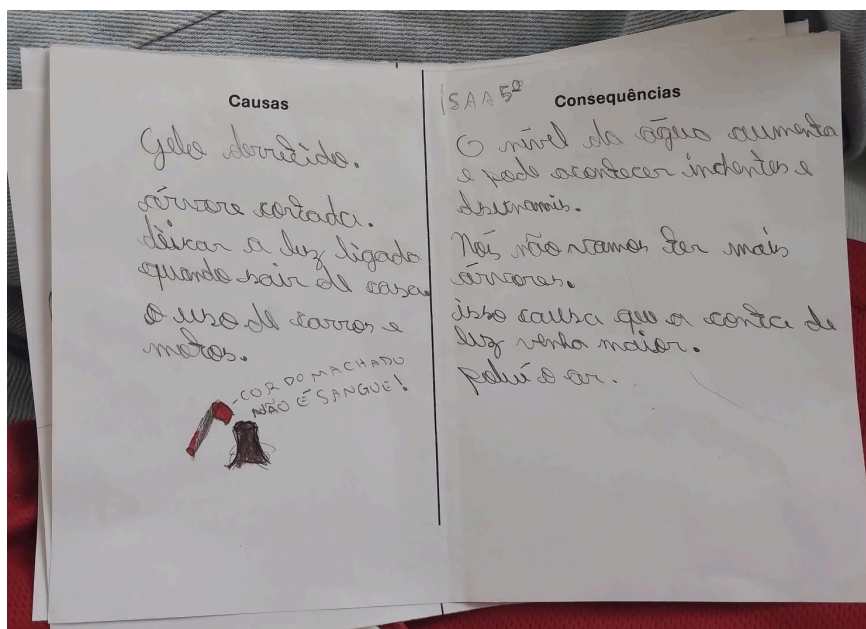 Causas
Gelo derretido.
árvore cortada.
deixar a luz ligada
quando sair de casa.
o uso de carros e
motos.
COR DO MACHADO
NÃO É SANGUE!
ISAA 5º
Consequências
O nível da água aumenta
e pode acontecer inchentes e
dsunamis.
Nós não vamos ter mais
árvores.
isso causa que a conta de
luz venha maior.
polui o ar.